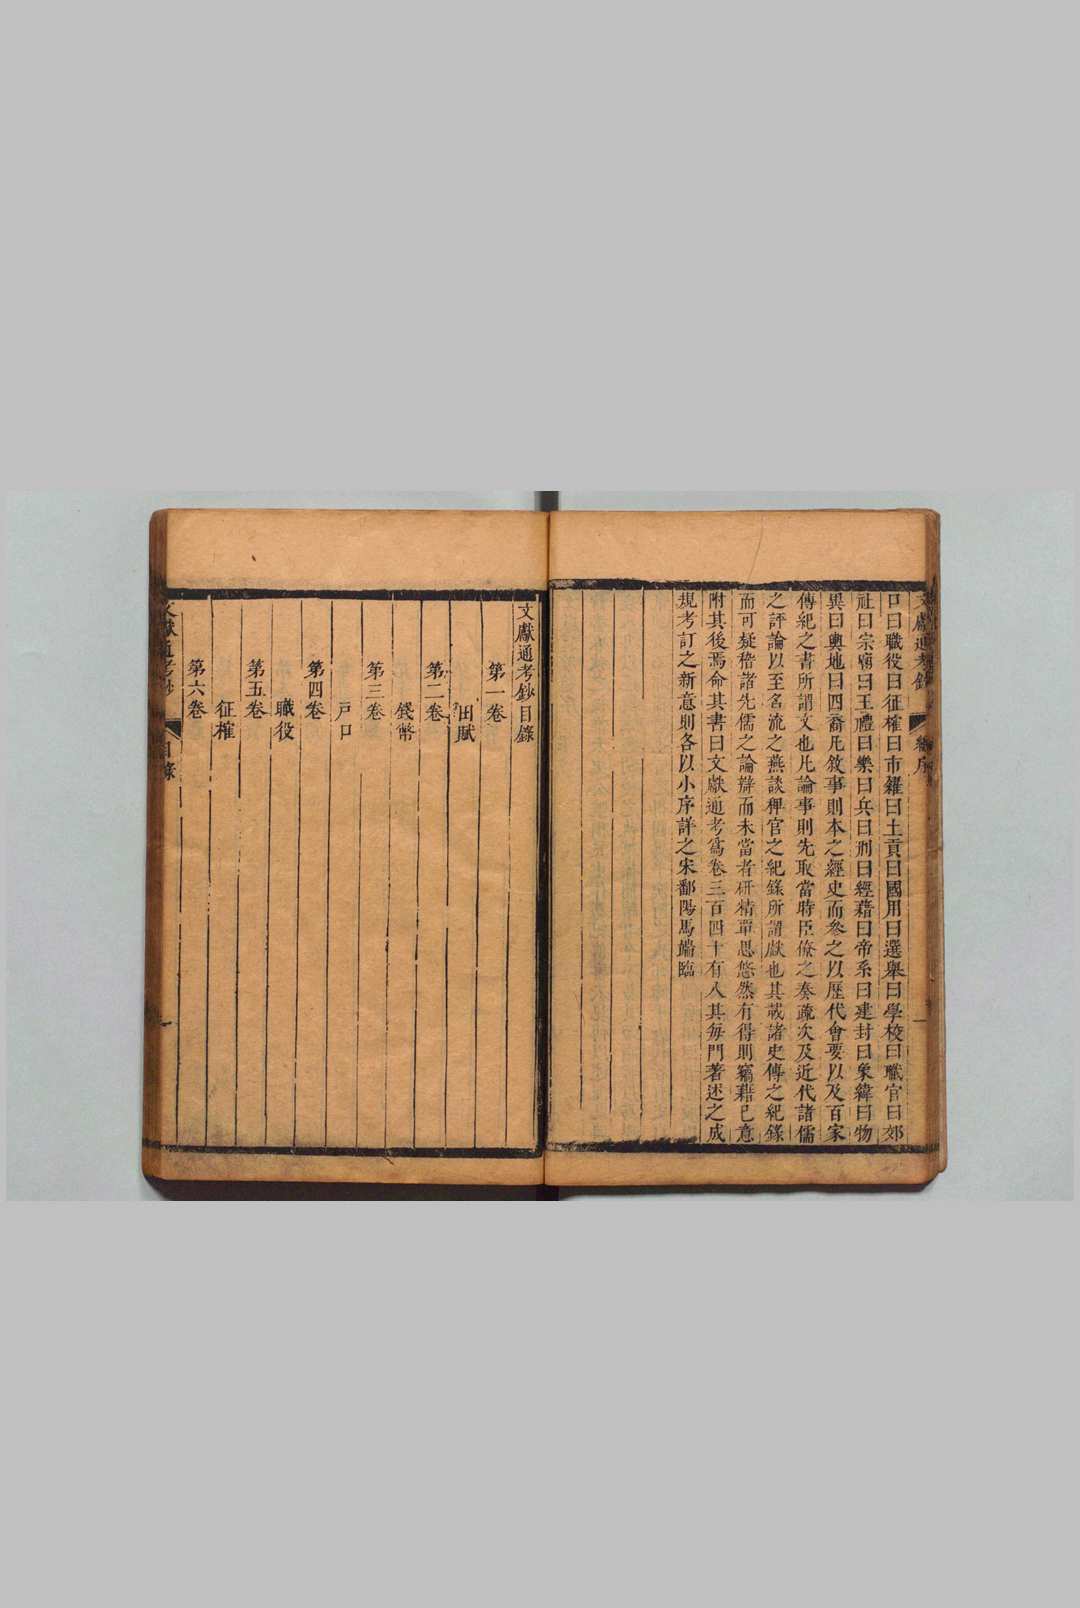 文獻通考鈔 總序
口曰職役曰征榷曰市糴曰土貢曰國用曰選舉曰學校曰職官曰郊
社曰宗廟曰王禮曰樂曰兵曰刑曰經籍曰帝系曰建封曰象緯曰物
異曰輿地曰四裔凡敘事則本之經史而參之以歷代會要以及百家
傳紀之書所謂文也凡論事則先取當時臣僚之奏疏次及近代諸儒
之評論以至名流之燕談稗官之紀錄所謂獻也其載諸史傳之紀錄
而可疑稽諸先儒之論辯而未當者研精單思悠然有得則竊藉已意
附其後焉命其書曰文獻通考爲卷三百四十有八其每門著述之成
規考訂之新意則各以小序詳之宋鄱陽馬端臨
文獻通考鈔目錄
第一卷
田賦
第二卷
錢幣
第三卷
戶口
第四卷
職役
第五卷
征榷
第六卷
文獻通考鈔 目錄 一